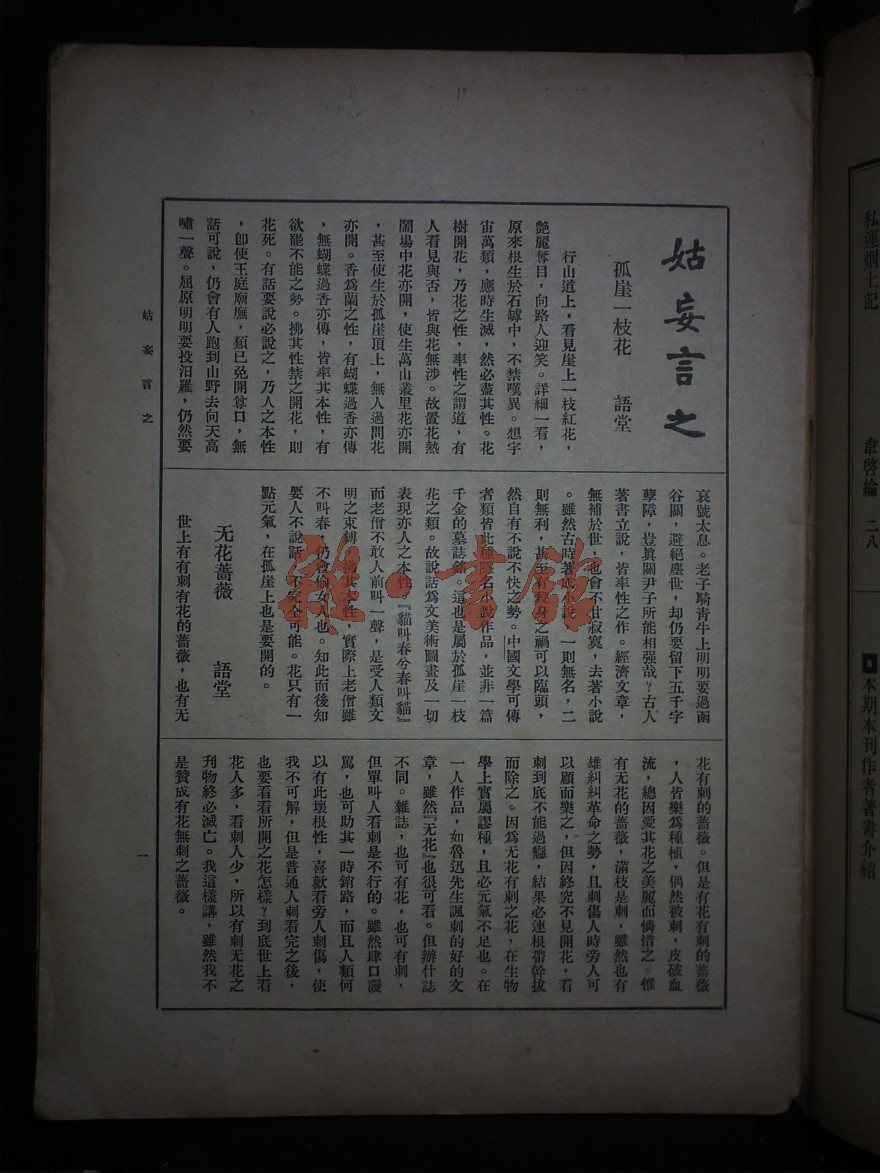 姑妄言之
孤崖一枝花　語堂
行山道上，看見崖上一枝紅花，
艷麗奪目，向路人迎笑。詳細一看，
原來根生於石罅中，不禁嘆異。想宇
宙萬類，應時生滅，然必盡其性。花
樹開花，乃花之性，率性之謂道，有
人看見與否，皆與花無涉。故置花熱
鬧場中花亦開，使生萬山叢里花亦開
，甚至使生於孤崖頂上，無人過問花
亦開。香爲蘭之性，有蝴蝶過香亦傳
，無蝴蝶過香亦傳，皆率其本性，有
欲罷不能之勢。拂其性禁之開花，則
花死。有話要說必說之，乃人之本性
，卽使王庭廟廡，類已免開尊口，無
話可說，仍會有人跑到山野去向天高
嘯一聲。屈原明明要投汨羅，仍然要
哀號太息。老子騎青牛上明明要過函
谷關，避絕塵世，却仍要留下五千字
孽障，豈眞關尹子所能相强哉？古人
著書立說，皆率性之作。經濟文章，
無補於世，也會不甘寂寞，去著小說
。雖然古時著成小說，一則無名，二
則無利，甚至有殺身之禍可以臨頭，
然自有不說不快之勢。中國文學可傳
者類皆此種隱名小說作品，並非一篇
千金的墓誌銘。這也是屬於孤崖一枝
花之類。故說話爲文美術圖畫及一切
表現亦人之本性。『貓叫春兮春叫貓』
而老僧不敢人前叫一聲，是受人類文
明之束縛，拂其本性，實際上老僧雖
不叫春，仍會偷女人也。知此而後知
要人不說話，不完全可能。花只有一
點元氣，在孤崖上也是要開的。
无花薔薇　語堂
世上有有刺有花的薔薇，也有无
花有刺的薔薇。但是有花有刺的薔薇
，人皆樂爲種植，偶然被刺，皮破血
流，總因愛其花之美麗而憐惜之。惟
有无花的薔薇，滿枝是刺，雖然也有
雄糾糾革命之勢，且刺傷人時旁人可
以顧而樂之，但因終究不見開花，看
刺到底不能過癮，結果必連根帶幹拔
而除之。因爲无花有刺之花，在生物
學上實屬謬種，且必元氣不足也。在
一人作品，如魯迅先生諷刺的好的文
章，雖然『无花』也很可看。但辦什誌
不同。雜誌，也可有花，也可有刺，
但單叫人看刺是不行的。雖然肆口謾
罵，也可助其一時銷路，而且人類何
以有此壞根性，喜歡看旁人刺傷，使
我不可解，但是普通人刺看完之後，
也要看看所開之花怎樣？到底世上看
花人多，看刺人少，所以有刺无花之
刊物終必滅亡。我這樣講，雖然我不
是贊成有花無刺之薔薇。
姑妄言之
一
私運烟土記　韋啓綸　二八
本期本刊作者著書介紹
雜·書館